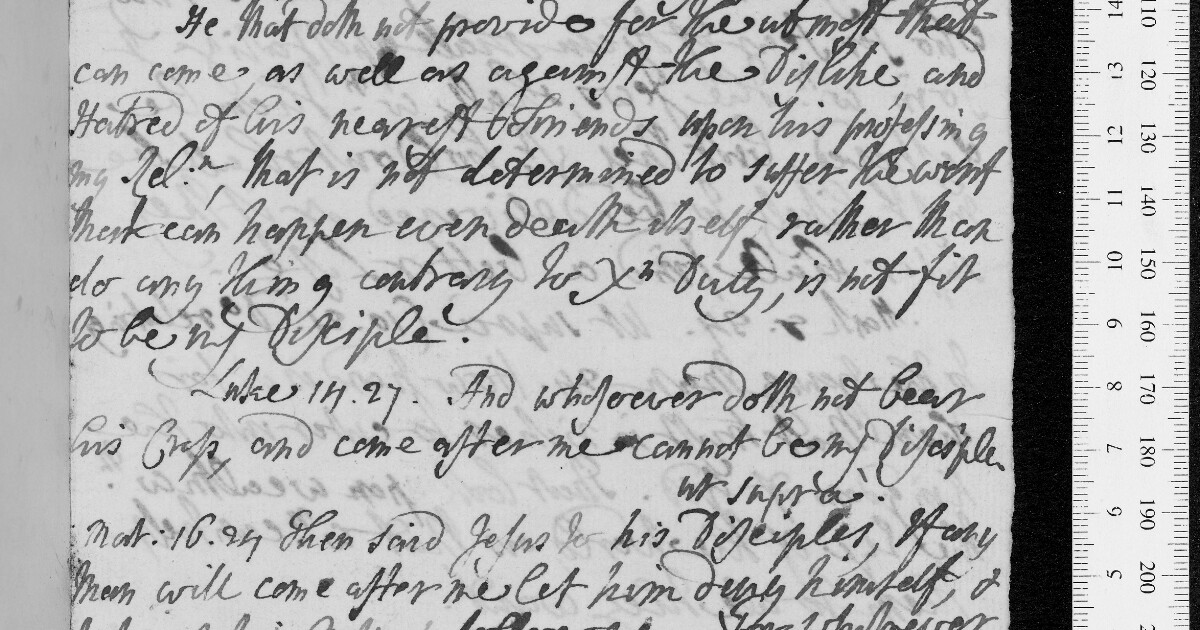 He that doth not provide for the utmost that
can come, as well as against the Dislike, and
Hatred of his nearest Friends upon his professing
my Rel:n, that is not determined to suffer the worst
that can happen even death itself rather than
do any thing contrary to Xn Duty, is not fit
to be my Disciple.
Luke 14.27. And whosoever doth not bear
his Cross, and come after me cannot be my Disciple.
ut supra.
Mat: 16.24 Then said Jesus to his Disciples, If any
Man will come after me let him deny himself, &
whosoever
14 13 12 11 10 9 8 7 6 5
110 120 130 140 150 160 170 180 190 200